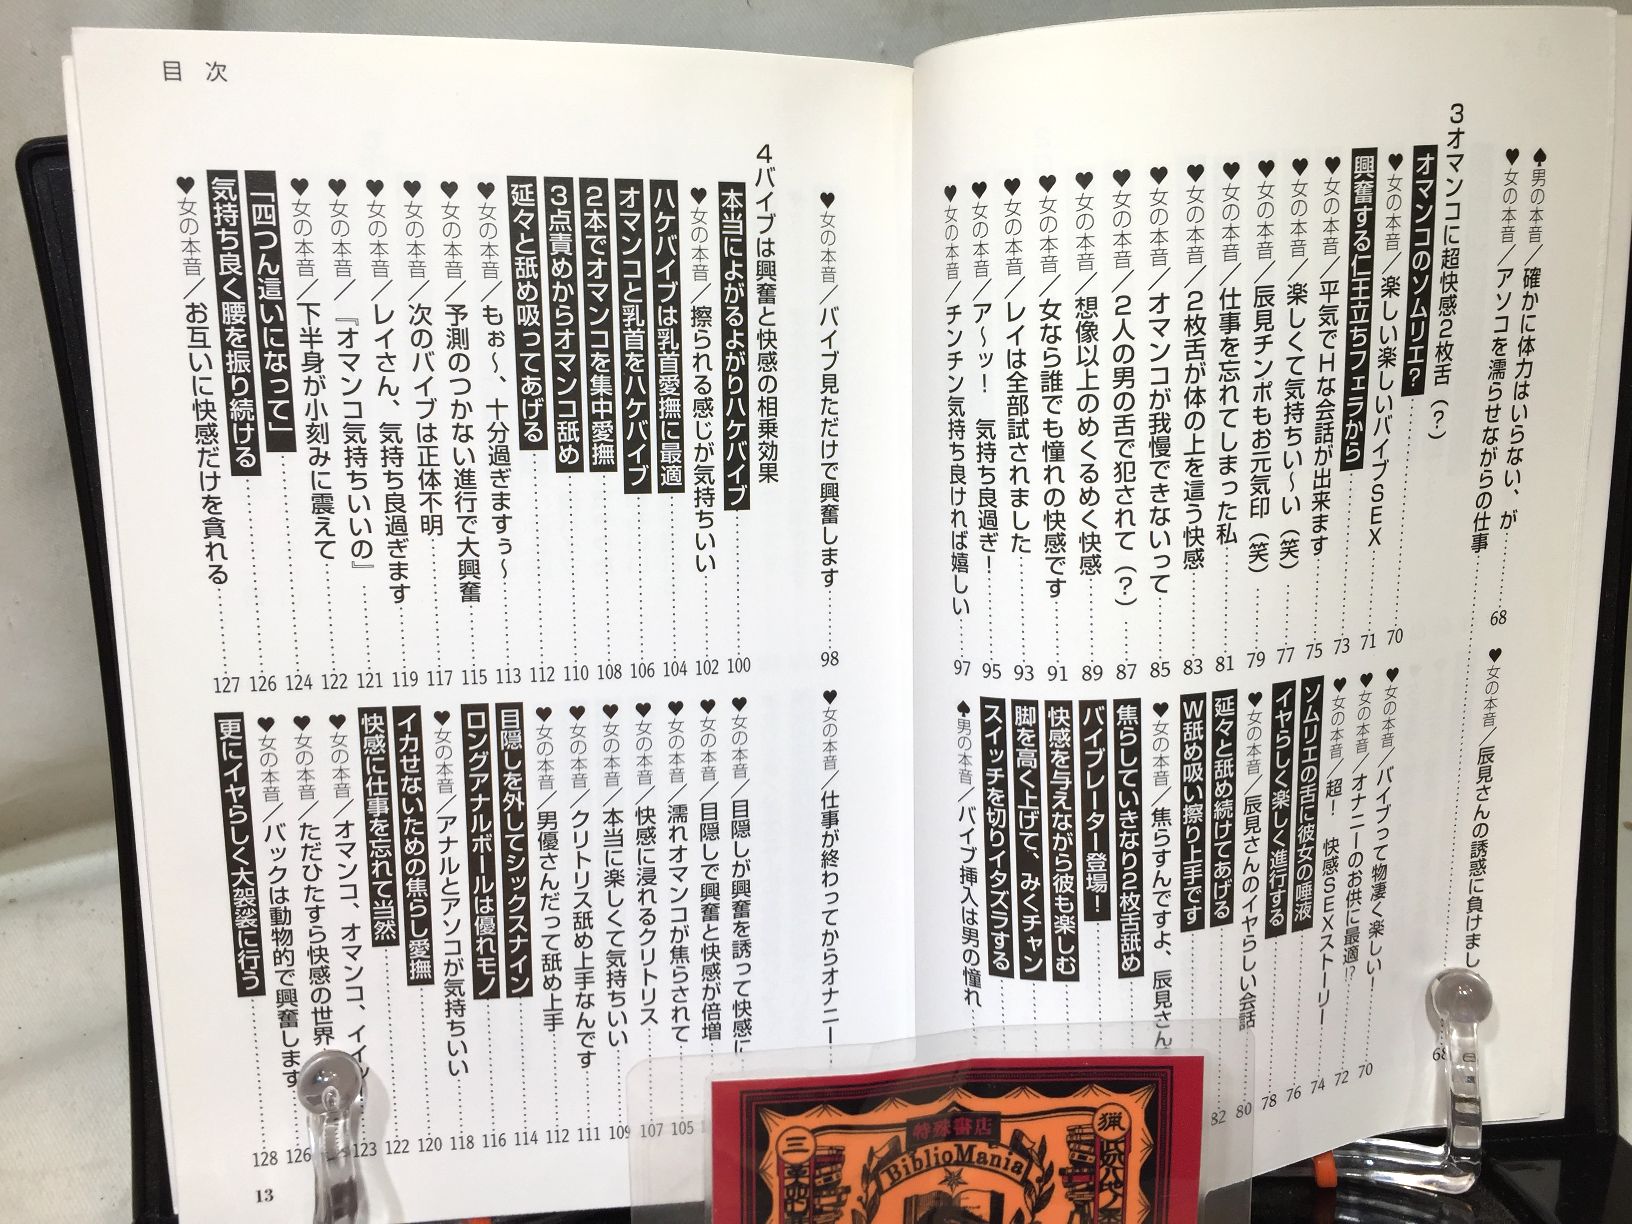 ♠男の本音／確かに体力はいらない、が……68
♥女の本音／アソコを濡らせながらの仕事……68
♥女の本音／辰見さんの誘惑に負けまし
3 オマンコに超快感2枚舌（？）
オマンコのソムリエ？……70
♥女の本音／楽しい楽しいバイブSEX……71
興奮する仁王立ちフェラから……73
♥女の本音／平気でHな会話が出来ます……75
♥女の本音／楽しくて気持ちい〜い（笑）……77
♥女の本音／辰見チンポもお元気印（笑）……79
♥女の本音／仕事を忘れてしまった私……81
♥女の本音／2枚舌が体の上を這う快感……83
♥女の本音／オマンコが我慢できないって……85
♥女の本音／2人の男の舌で犯されて（？）……87
♥女の本音／想像以上のめくるめく快感……89
♥女の本音／女なら誰でも憧れの快感です……91
♥女の本音／レイは全部試されました……93
♥女の本音／ア〜ッ！　気持ち良過ぎ！……95
♥女の本音／チンチン気持ち良ければ嬉しい……97
♥女の本音／バイブって物凄く楽しい！……70
♥女の本音／オナニーのお供に最適!?……72
♥女の本音／超！　快感SEXストーリー……74
ソムリエの舌に彼女の唾液……76
イヤらしく楽しく進行する……78
♥女の本音／辰見さんのイヤらしい会話……80
延々と舐め続けてあげる……82
W舐め吸い擦り上手です
♥女の本音／焦らすんですよ、辰見さん
焦らしていきなり2枚舌舐め
バイブレーター登場！
快感を与えながら彼も楽しむ
脚を高く上げて、みくチャン
スイッチを切りイタズラする
♠男の本音／バイブ挿入は男の憧れ
目 次
♥女の本音／バイブ見ただけで興奮します……98
♥女の本音／仕事が終わってからオナニー
4 バイブは興奮と快感の相乗効果
本当によがるよがりハケバイブ……100
♥女の本音／擦られる感じが気持ちいい……102
ハケバイブは乳首愛撫に最適……104
オマンコと乳首をハケバイブ……106
2本でオマンコを集中愛撫……108
3点責めからオマンコ舐め……110
延々と舐め吸ってあげる……112
♥女の本音／もぉ〜、十分過ぎますぅ〜……113
♥女の本音／予測のつかない進行で大興奮……115
♥女の本音／次のバイブは正体不明……117
♥女の本音／レイさん、気持ち良過ぎます……119
♥女の本音／『オマンコ気持ちいいの』……121
♥女の本音／下半身が小刻みに震えて……122
♥女の本音……124
「四つん這いになって」……126
気持ち良く腰を振り続ける……127
♥女の本音／お互いに快感だけを貪れる
♥女の本音／目隠しが興奮を誘って快感に
♥女の本音／目隠しで興奮と快感が倍増
♥女の本音／濡れオマンコが焦らされて……105
♥女の本音／快感に浸れるクリトリス……107
♥女の本音／本当に楽しくて気持ちいい……109
♥女の本音／クリトリス舐め上手なんです……111
♥女の本音／男優さんだって舐め上手……112
目隠しを外してシックスナイン……114
ロングアナルボールは優れモノ……116
♥女の本音／アナルとアソコが気持ちいい……118
イカせないための焦らし愛撫……120
快感に仕事を忘れて当然……122
♥女の本音／オマンコ、オマンコ、イイッ……123
♥女の本音／ただひたすら快感の世界
♥女の本音／バックは動物的で興奮します……126
更にイヤらしく大袈裟に行う……128
13
特殊書店
BiblioMania
猟
三